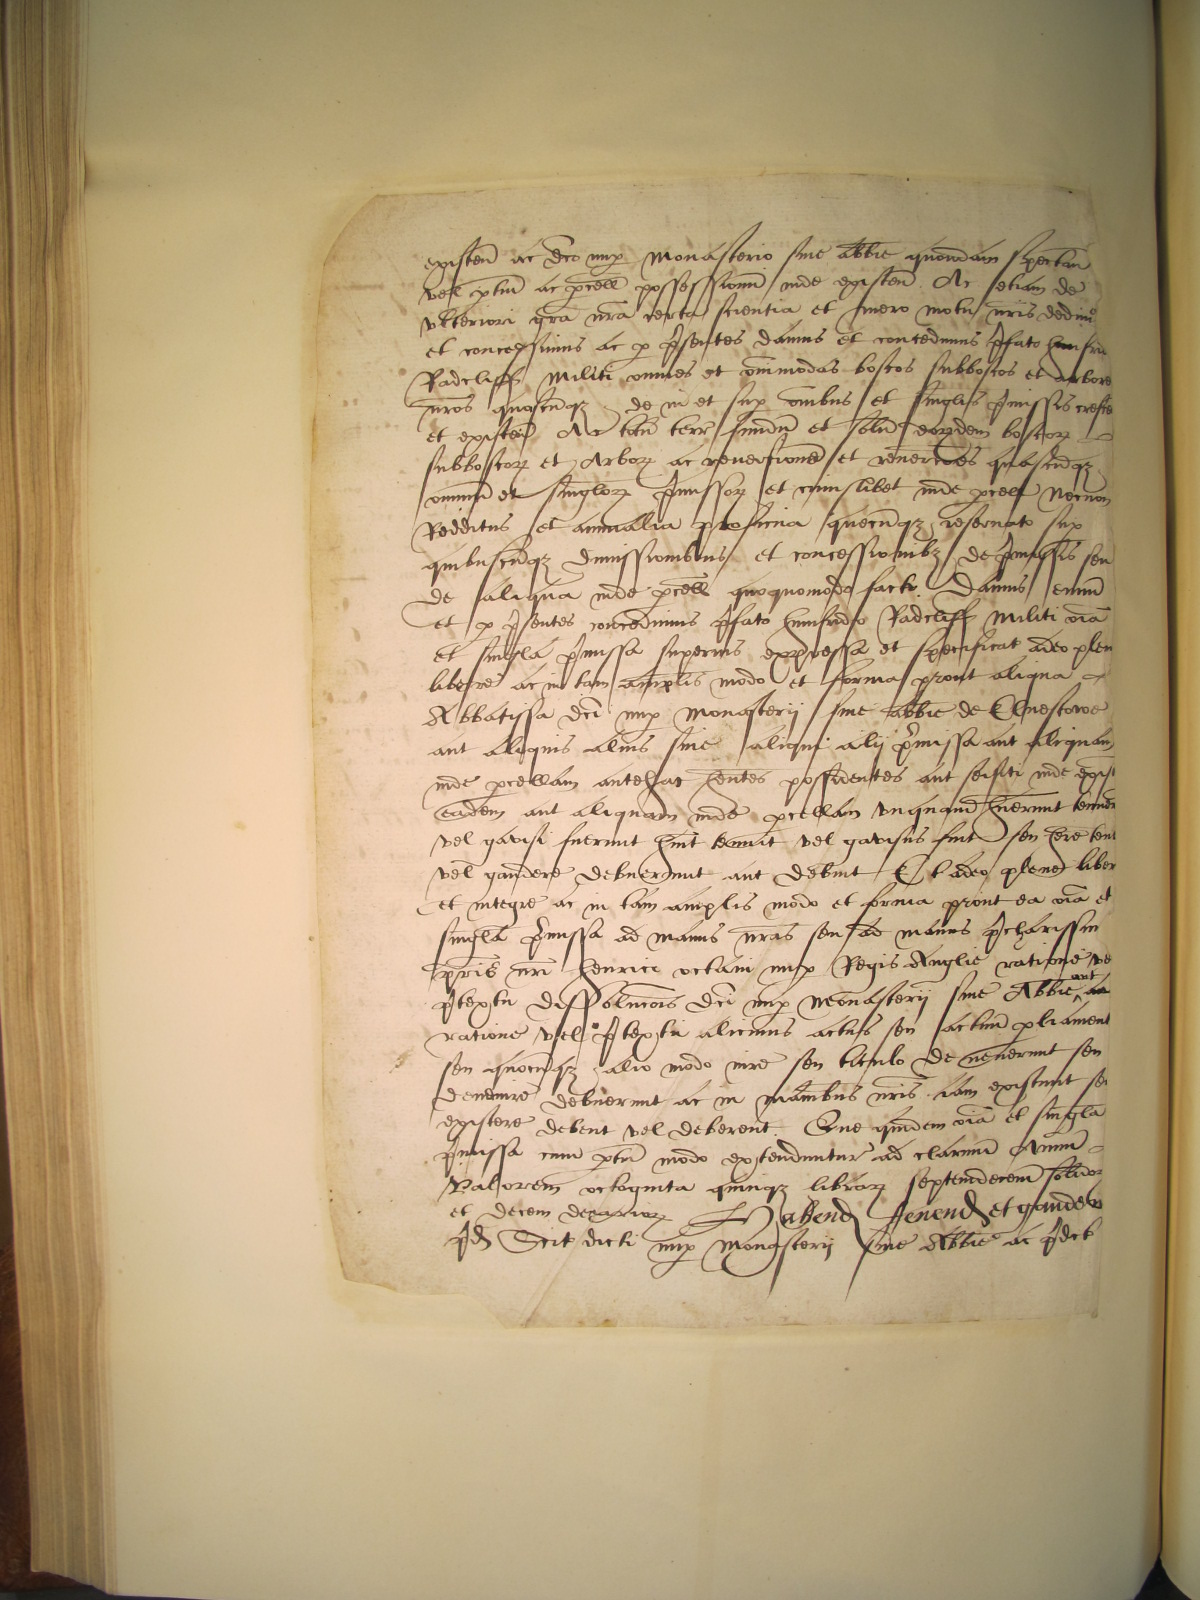 existeñ ac dc̃o nup Monasterio sive abbie quondam spectañ
vel ptiñ ac pcell possessionũ inde existeñ Ac etiam de
vlteriori gr̃a nr̃a certa scientia et mero motu nr̃is dedim9
et concessimus ac p p̃sentes damus et concedimus p̃fato Humfri
Radcliff Militi omnes et om̃imodos boscos subboscos et arbore
nr̃os quoscũqz de in et sup om̃ibus et singlis p̃missis cresceñ
et existeñ Ac totũ terr̃ fundũ et solũ eorzdem boscorz
subboscorz et Arborz ac reversionẽ et reverc̃oẽs quascũqz
omniũ et singlorz p̃missorz et cuiuslibet inde pcell Necnon
Redditus et annualia proficua quecũqz reservato sup
quibuscũqz dimissionibus et concessionibz de p̃missis seu
de aliqua inde pcell quoquomodo facti Damus enim̃
et p p̃sentes concedimus p̃fato Humfrido Radcliff Militi om̃ia
et singla p̃missa superius expressa et specificat adeo plen
libere ac in tam amplis modo et forma prout aliqua
Abbatissa dc̃i nup Monasterij sive abbie de Elnestowe
aut aliquis alius sive aliqui alij p̃missa aut aliquam
inde pcellam antehac h̃entes possidentes aut seisiti inde exist
eadem aut aliquam inde pcellam vnquam h̃uerunt tenuer
vel gavisi fuerunt h̃uit tenuit vel gavisus fuit seu h̃ere ten
vel gaudere debuerunt aut debuit Et adeo plene liber
et integre ac in tam amplis modo et forma prout ea om̃ia et
singla p̃missa ad manus nr̃as seu ad manus p̃charissim
pr̃is nr̃i Henrici octavi nup Regis Anglie ratione ve
p̃textu dissoluc̃ois dc̃i nup Monasterij sive Abbie aut
ratione vel p̃textu alicuius actus seu actuũ pliament
seu quocũqz alio modo iure seu titulo devenerunt seu
devenire debuerunt ac in manibus nr̃is iam existunt seu
existere debent vel deberent Que quidem om̃ia et singla
p̃missa cum ptiñ modo extenduntur ad clarum Annuũ
Valorem octoginta quinqz librarz septemdecem solidor
et decem denariorz Habend Tenend et gauded
p̃d Scit dicti nup Monasterij sive Abbie ac p̃dct